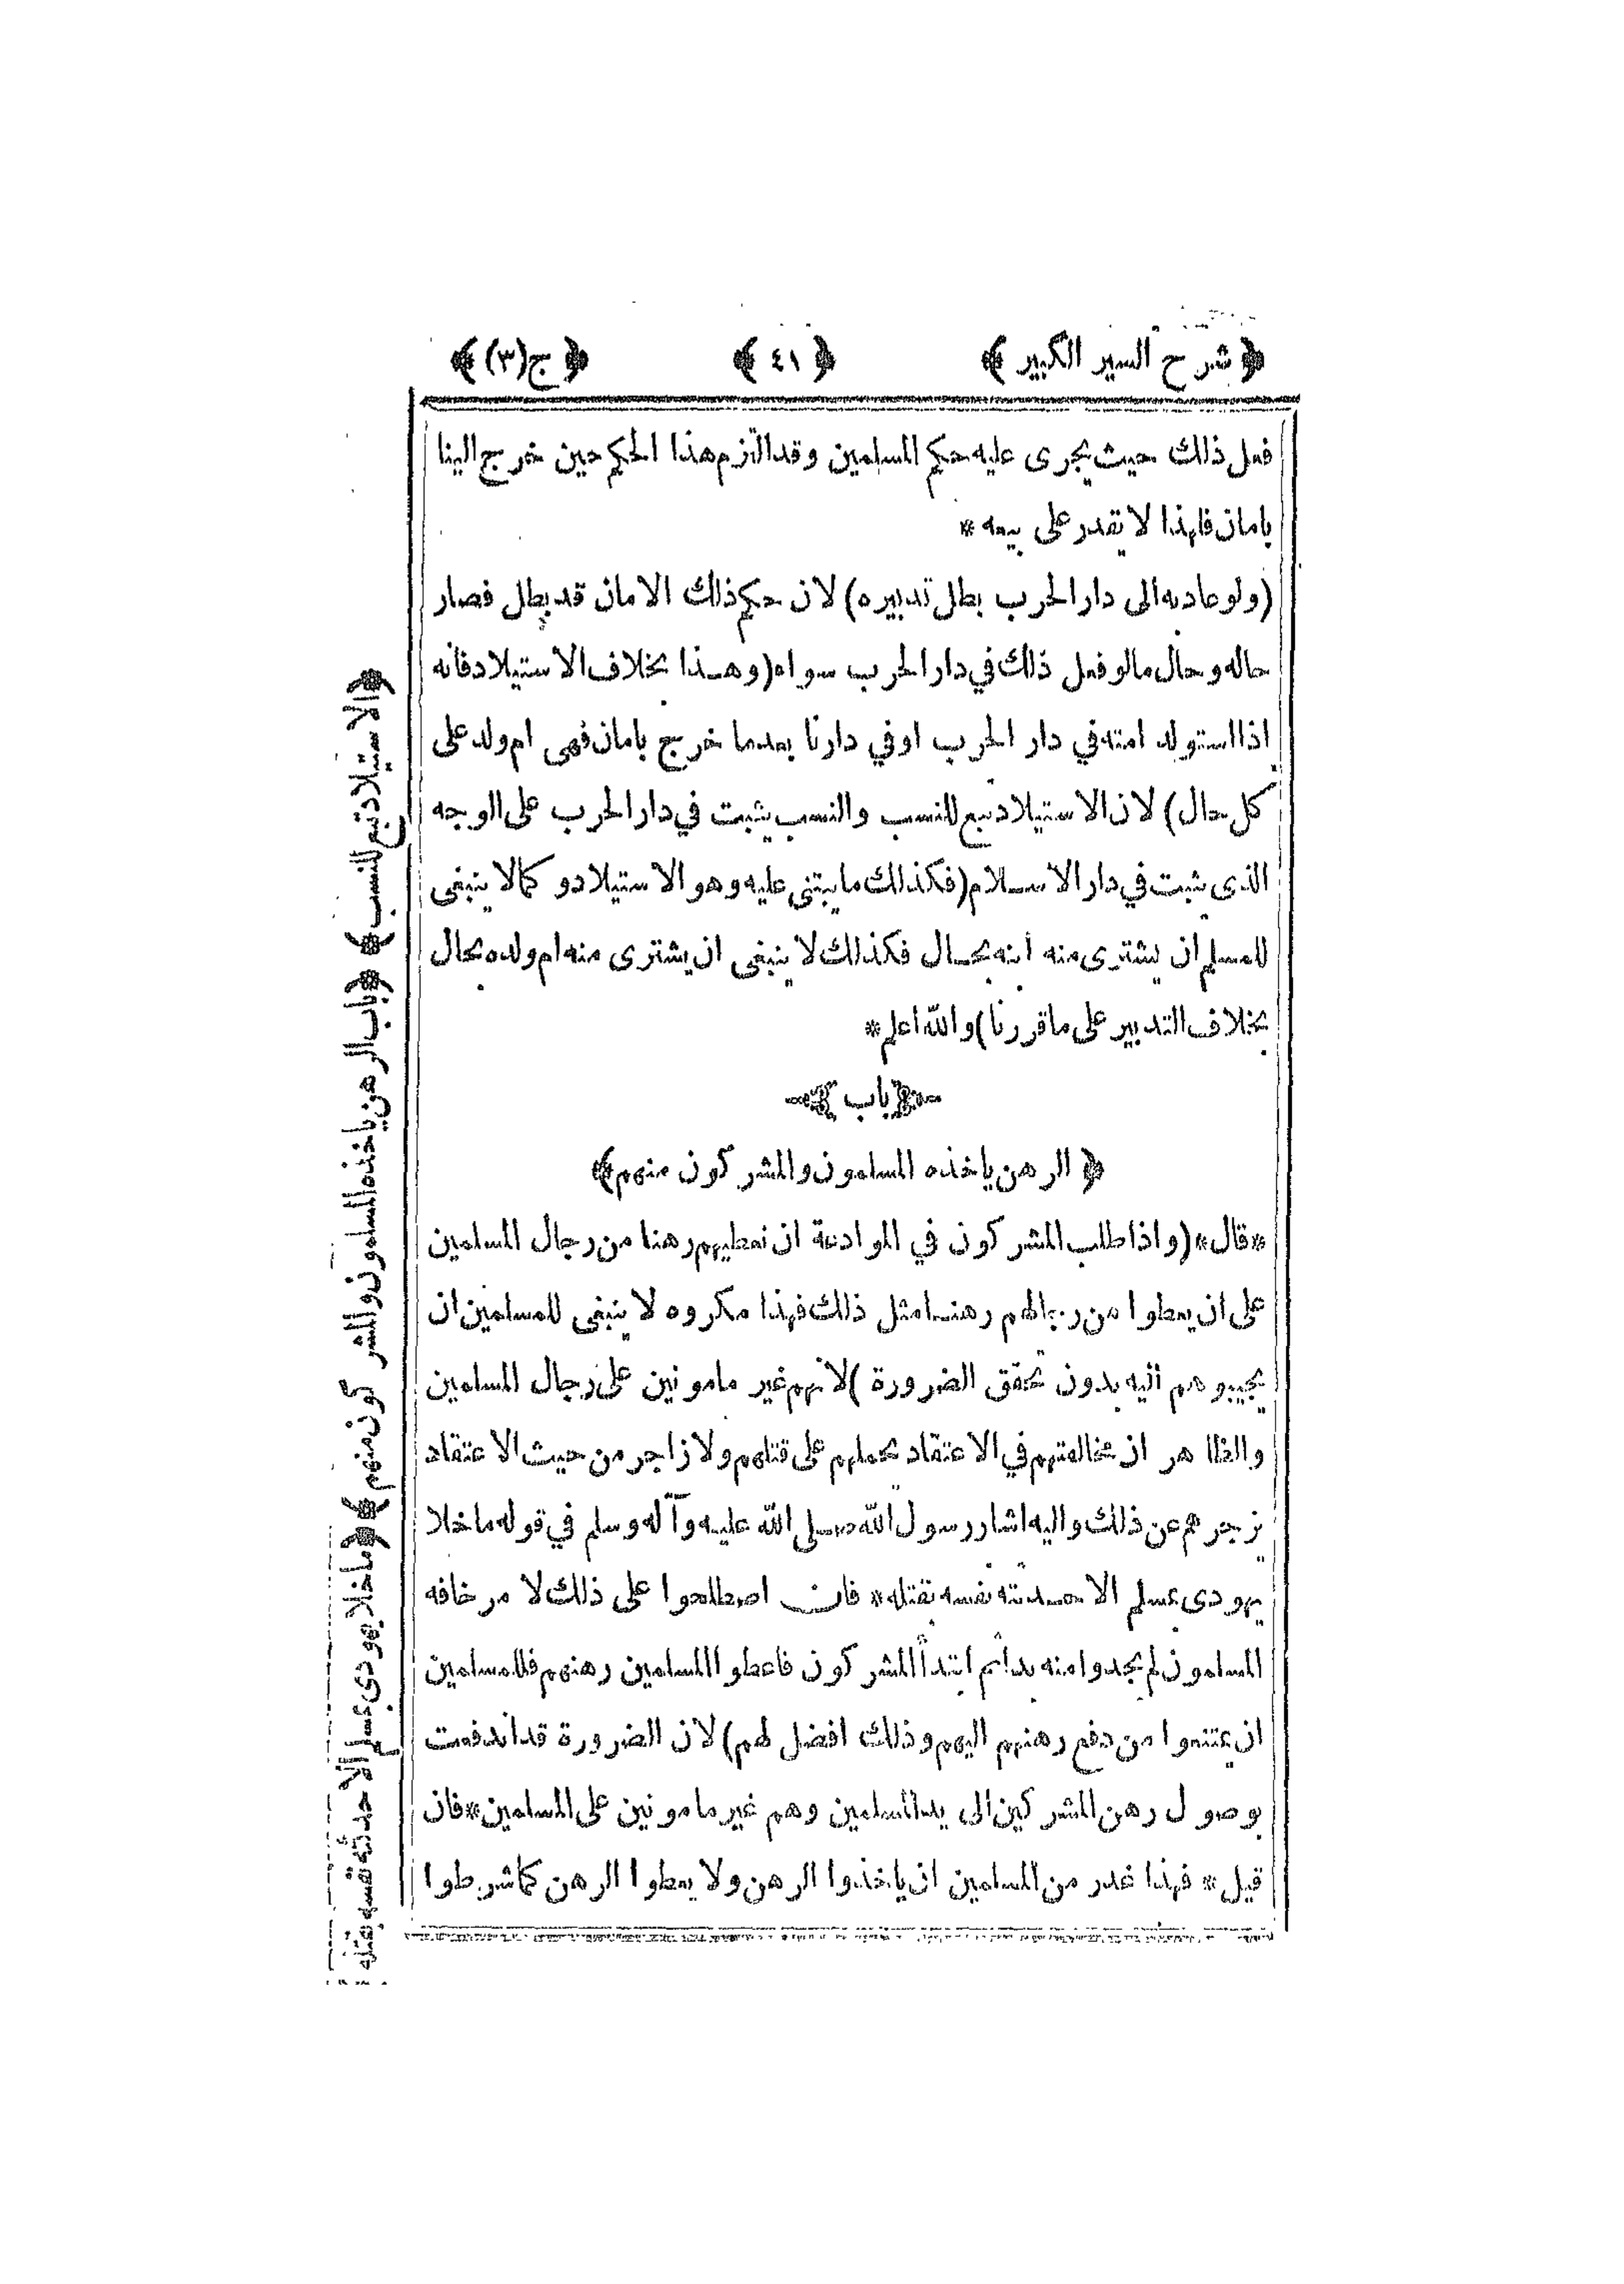 ﴿ شرح السير الكبير ﴾ ﴿ ٤١ ﴾ ﴿ ج(٣) ﴾
فعل ذلك حيث يجرى عليه حكم المسلمين وقد التزم هذا الحكم حين خرج الينا
بامان فلهذا لا يقدر على بيعه *
(ولو عاد به الى دار الحرب بطل تدبيره) لان حكم ذلك الامان قد بطل فصار
حاله وحال مالو فعل ذلك في دار الحرب سواء (وهذا بخلاف الاستيلاد فانه
اذا استولد امته في دار الحرب او في دارنا بعدما خرج بامان فهى ام ولد على
كل حال) لان الاستيلاد تبع للنسب والنسب يثبت في دار الحرب على الوجه
الذى يثبت في دار الاسلام (فكذلك ما يبتنى عليه وهو الاستيلاد و كما لا ينبغى
للمسلم ان يشترى منه ابنه بحال فكذلك لا ينبغى ان يشترى منه ام ولده بحال
بخلاف التدبير على ما قررنا) والله اعلم *
﴿ باب ﴾
﴿ الرهن ياخذه المسلمون والمشركون منهم ﴾
*قال* (واذا طلب المشركون في الموادعة ان نعطيهم رهنا من رجال المسلمين
على ان يعطوا من رجالهم رهنا مثل ذلك فهذا مكروه لا ينبغى للمسلمين ان
يجيبوهم اليه بدون تحقق الضرورة) لانهم غير مامونين على رجال المسلمين
والظاهر ان مخالفتهم في الاعتقاد يحملهم على قتلهم ولا زاجر من حيث الاعتقاد
يزجرهم عن ذلك واليه اشار رسول الله صلى الله عليه وآله وسلم في قوله ما خلا
يهودى بمسلم الا حدثته نفسه بقتله* فان اصطلحوا على ذلك لامر خافه
المسلمون لم يجدوا منه بدا ثم ابتدأ المشركون فاعطوا المسلمين رهنهم فللمسلمين
ان يمتنعوا من دفع رهنهم اليهم وذلك افضل لهم) لان الضرورة قد اندفعت
بوصول رهن المشركين الى يد المسلمين وهم غير مامونين على المسلمين * فان
قيل * فهذا غدر من المسلمين ان ياخذوا الرهن ولا يعطوا الرهن كما شرطوا
﴿ الاستيلاد تبع للنسب ﴾ ﴿ باب الرهن ياخذه المسلمون والمشركون منهم ﴾ ﴿ ما خلا يهودى بمسلم الا حدثته نفسه بقتله